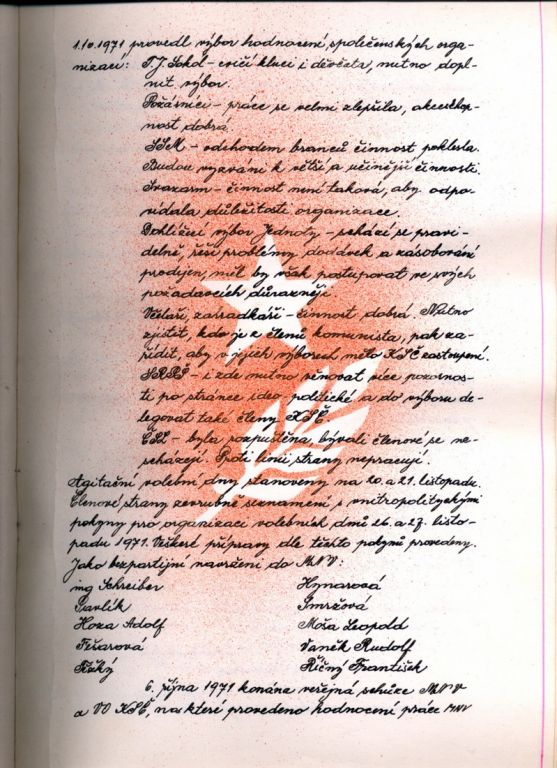 1.10.1971 provedl výbor hodnocení společenských orga-
nizací: T.J. Sokol - cvičí kluci i děvčata, nutno dopl-
nit výbor.
Požárníci - práce se velmi zlepšila, akceschop-
nost dobrá
SSM - odchodem branců činnost poklesla.
Budou vyzváni k větší a účinější činnosti.
Svazarm - činnost není taková, aby odpo-
vídala důležitosti organizace.
Dohlížecí výbor Jednoty - schází se pravi-
delně, řeší problémy dodávek a zásobování
prodejen, měl by však postupovat ve svých
požadavcích důrazněji.
Včelaři, zahrádkáři - činnost dobrá. Nutno
zjistit, kdo je z členů komunista, pak za-
řídit, aby v jejich výborech měla KSČ zastoupení.
SRPŠ - i zde nutno věnovat více pozornos-
ti po stránce ideo-politické a do výboru de-
legovat také členy KSČ.
ČSL - byla rozpuštěna, bývalí členové se ne-
scházejí. Proti linii strany nepracují.
Agitační volební dny stanoveny na 20. a 21. listopadu.
Členové strany zevrubně seznámeni s vnitropolitickými
pokyny pro organizaci volebních dnů 26. a 27. listo-
padu 1971. Veškeré přípravy dle těchto pokynů provedeny.
Jako bezpartijní navrženi do MNV:
ing Schreiber Hynarová
Pavlík Smržová
Hoza Adolf Moša Leopold
Fešarová Vaněk Rudolf
Říčný František
6. října 1971 konána veřejná schůze MNV
a VO KSČ, na které provedeno hodnocení práce MNV